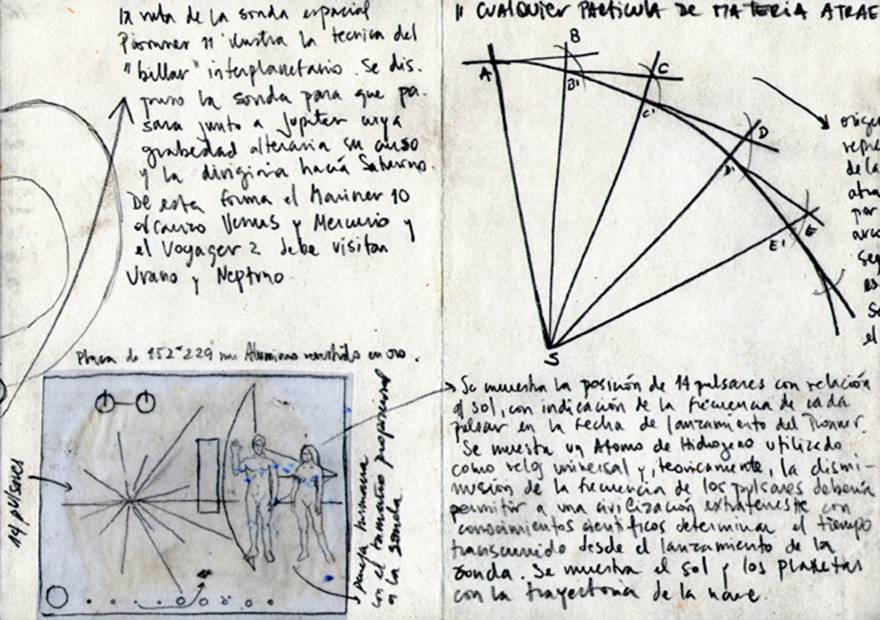 la ruta de la sonda espacial
Pioneer 11 ilustra la tecnica del
"billar" interplanetario. Se dis-
puso la sonda para que pa-
sara junto a Jupiter cuya
grabedad alteraria su curso
y la dirigiria hacia Saturno.
De esta forma el Mariner 10
alcanzo Venus y Mercurio y
el Voyager 2 debe visitar
Urano y Neptuno.
Placa de 152 × 229 mm Aluminio revestido en oro.
14 pulsares
pareja humana
con el tamaño proporcional
a la sonda.
" CUALQUIER PARTICULA DE MATERIA ATRAE
A
B
B'
C
C'
D
D'
E
E'
S
origen
repre
de la
atra
por
arco
seg
as
Se
el
Se muestra la posición de 14 pulsares con relación
al sol, con indicación de la frecuencia de cada
pulsar en la fecha de lanzamiento del Pioneer.
Se muestra un Atomo de Hidrogeno utilizado
como reloj universal y, teoricamente, la dismi-
nusión de la frecuencia de los pulsares deberia
permitir a una civilización extraterestre con
conocimientos cientificos determinar el tiempo
transcurrido desde el lanzamiento de la
sonda. Se muestra el sol y los planetas
con la trayectoria de la nave.